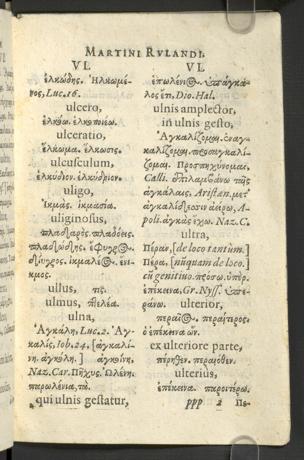 MARTINI RVLANDI.
VL
ἑλκώδης. Ἡλκωμέ-
νος, Luc. 16.
ulcero,
ἑλκόω. ἑλκοποιέω.
ulceratio,
ἕλκωμα. ἕλκωσις.
ulcusculum,
ἑλκύδιον. ἑλκύδριον.
uligo,
ἰκμάς. ἰκμασία.
uliginosus,
πλαδαρός. πλαδόεις.
πλαδώδης. ἔφυγρος.
δίυγρος. ἰκμαλέος. ἔνι-
κμος.
ullus, τὶς.
ulmus, πτελέα.
ulna,
Ἀγκάλη, Luc. 2. Ἀγ-
καλίς, Iob. 24. [ἀγκαλί-
νη. ἀγκόλη.] ἀγκοίνη,
Naz. Car. Πῆχυς. Ὠλένη.
παρωλένια, τὰ.
qui ulnis gestatur,
VL
ἐπωλένιος. ὑπαγκά-
λος ἔτι, Dio. Hal.
ulnis amplector,
in ulnis gesto,
Ἀγκαλίζομαι. ἐναγ-
καλίζομαι. προσαγκαλί-
ζομαι. Προσπηχύνομαι.
Calli. τὰς
ἀγκάλαις. Aristæn. μετ'
ἀίρω, A-
poli. ἀγκὰς ἔχω. Naz. C.
ultra,
Πέραν, [de loco tantùm.]
Πέρα, [nũquam de loco.
cũ genitiuo. πρόσω. ὑπὲρ.
ἐπέκεινα. Gr. Nyss. ὑπε-
ράνω. ulterior,
περαῖος. περαίτερος.
ὁ ἐπέκεινα ὤν.
ex ulteriore parte,
πέρηθεν. περαιόθεν.
ulterius,
ἐπέκεινα. παροιτέρω.
ppp 2 Πε-